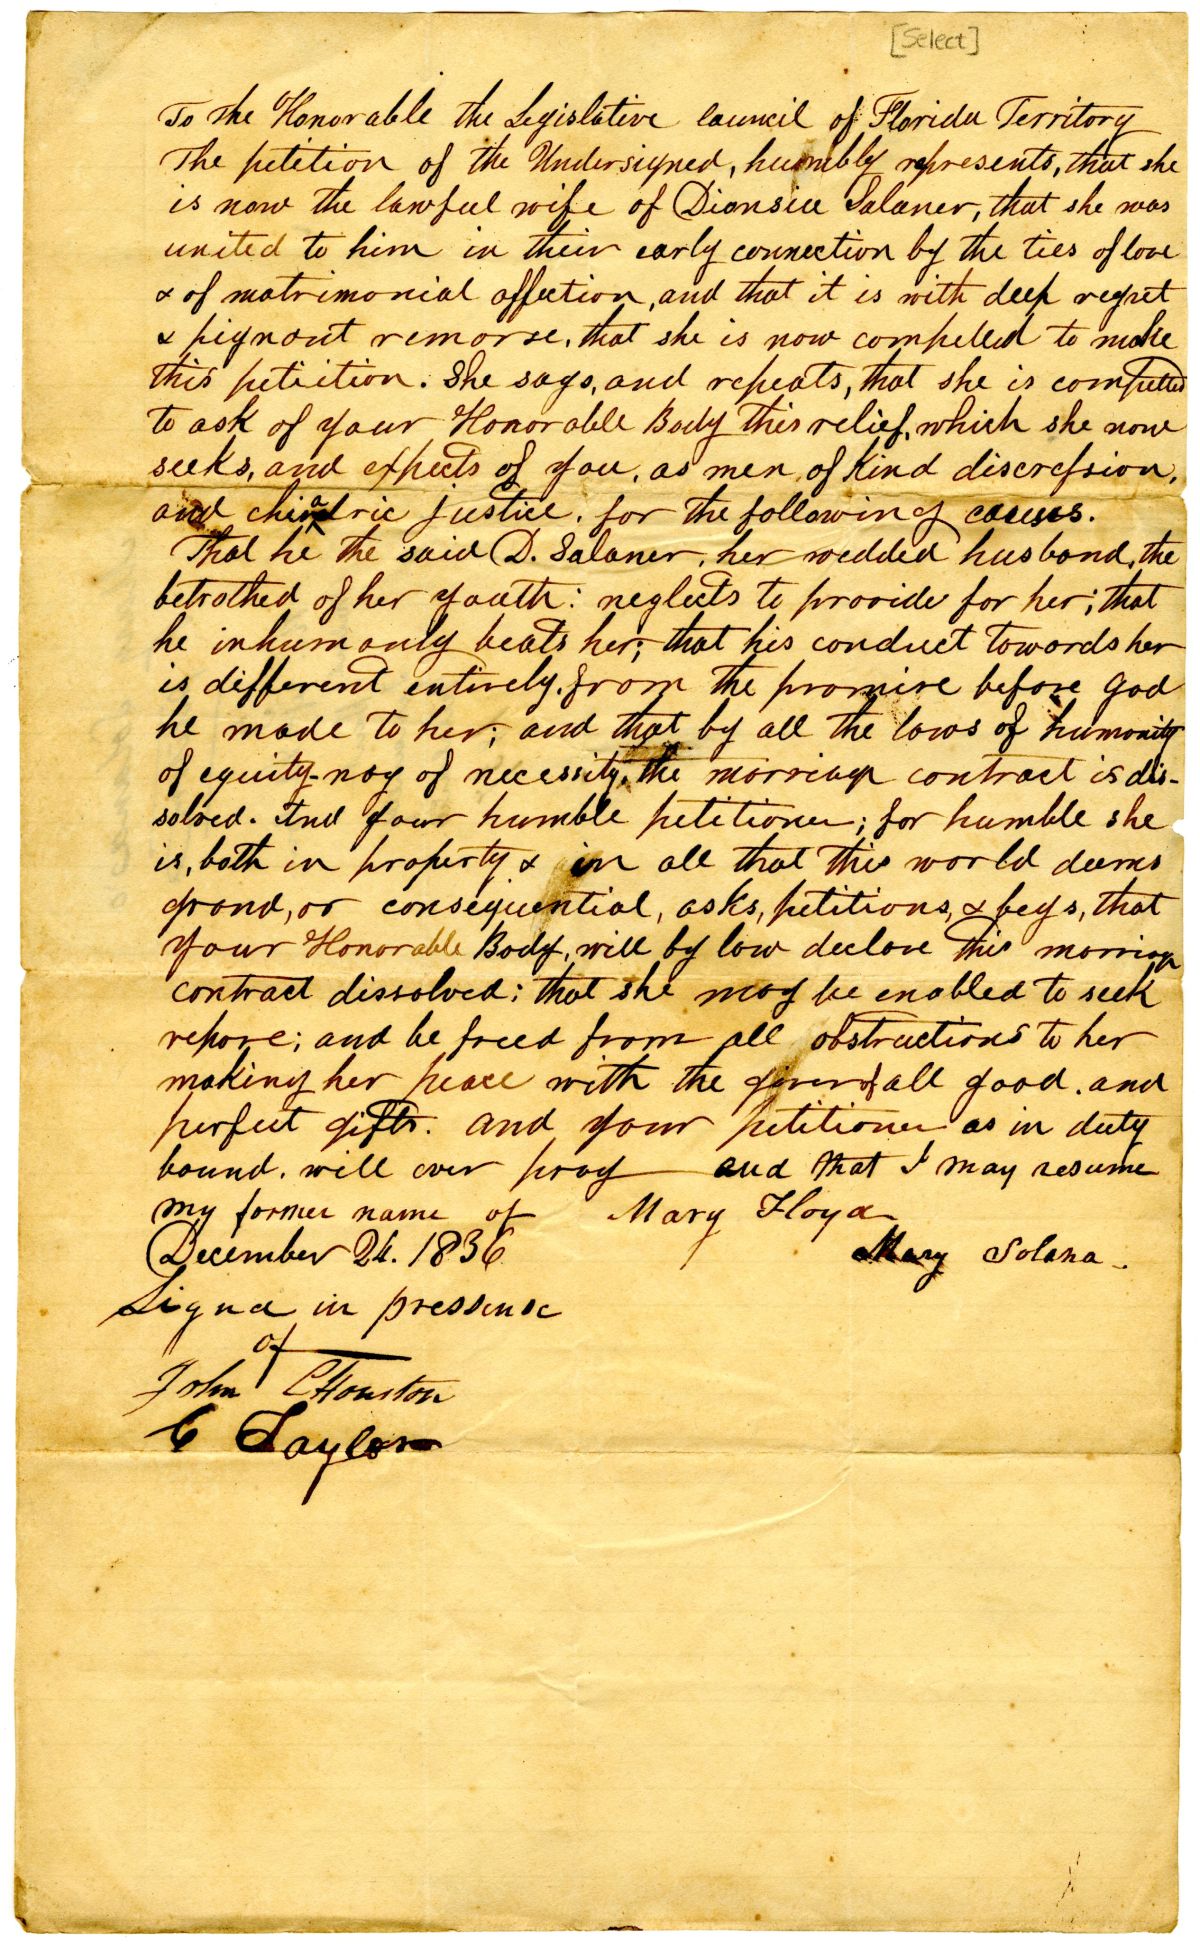 [Select]
To the Honorable the Legislative Council of Florida Territory
The petition of the Undersigned, humbly represents, that she
is now the lawful wife of Dionsiu Salaner, that she was
united to him in their early connection by the ties of love
& of matrimonial affection, and that it is with deep regret
& pignant remorse, that she is now compelled to make
this petition. She says, and repeats, that she is compelled
to ask of your Honorable Body this relief, which she now
seeks, and expects of you, as men of kind discression,
and justice, for the following causes.
That he the said D. Salaner, her wedded husband, the
betrothed of her youth: neglects to provide for her; that
he inhumanly beats her; that his conduct towards her
is different entirely, from the promise before God
he made to her; and that by all the laws of humanity
of equity - nay of necessity, the marriage contract is dis-
solved. And your humble petitioner; for humble she
is, both in property & in all that this world deems
grand, or consequential, asks, petitions, & begs, that
your Honorable Body, will by law declare this marriage
contract dissolved; that she may be enabled to seek
repose; and be freed from all obstructions to her
making her peace with the giver of all good, and
perfect gifts. And your petitioner as in duty
bound, will ever pray and that I may resume
my former name of Mary Floyd
December 24. 1836 Mary Solana.
Signd in pressense
of
John C Houston
C Taylor